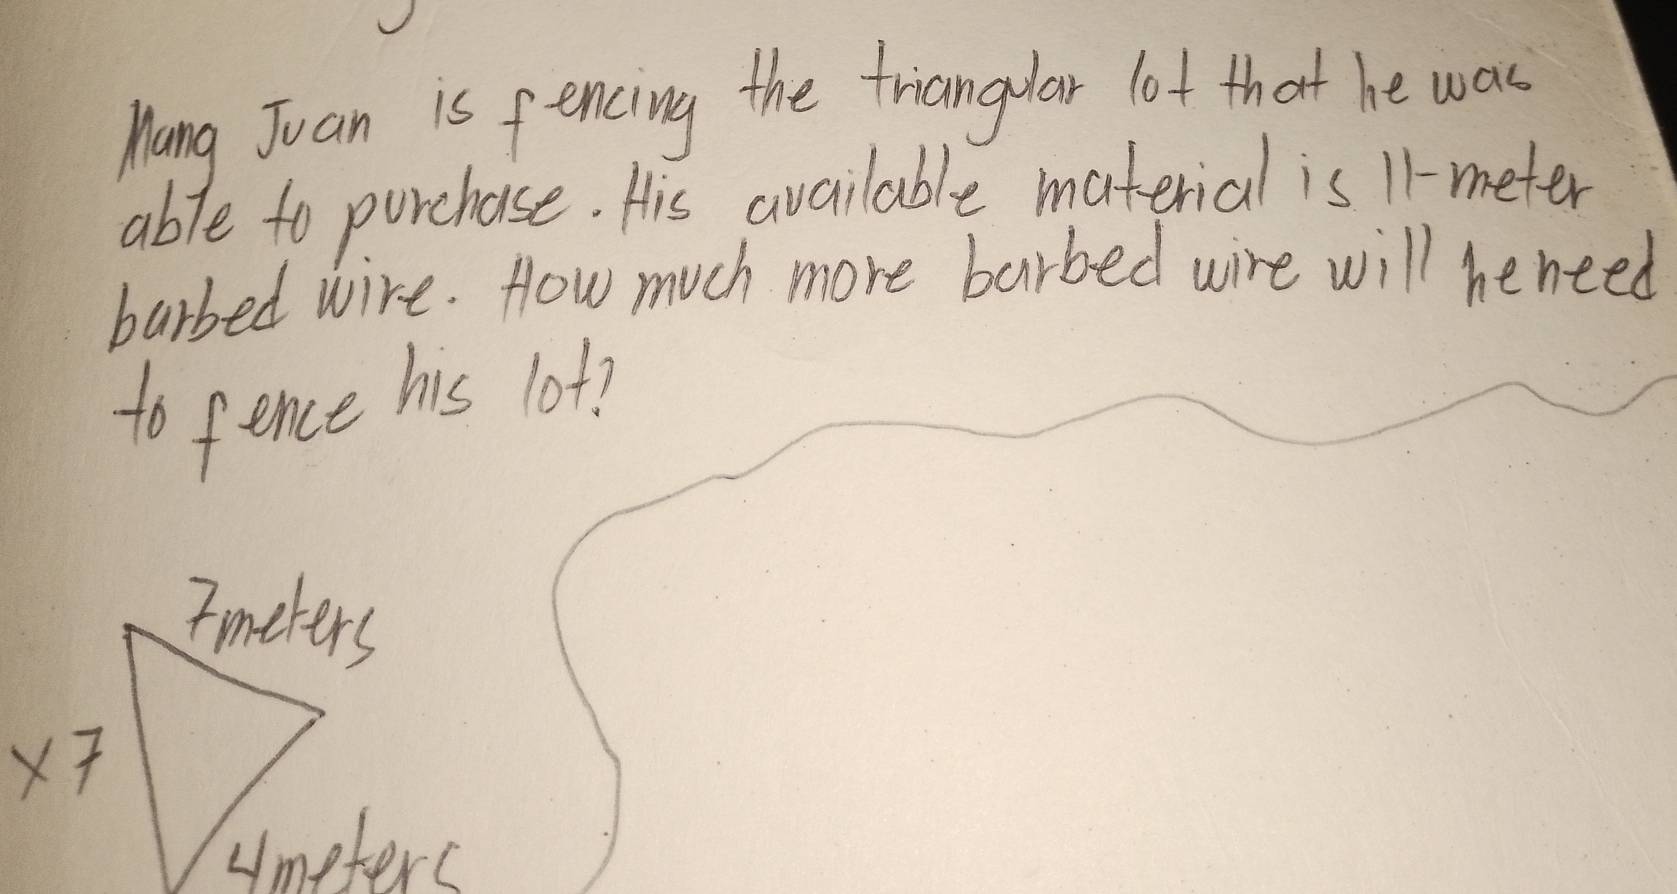 Mang Juan is fencing the triangular lot that he was
able to purchase. His available material is 11-meter
barbed wire. How much more barbed wire will he need
to fence his lot?
7meters
x7
4meters